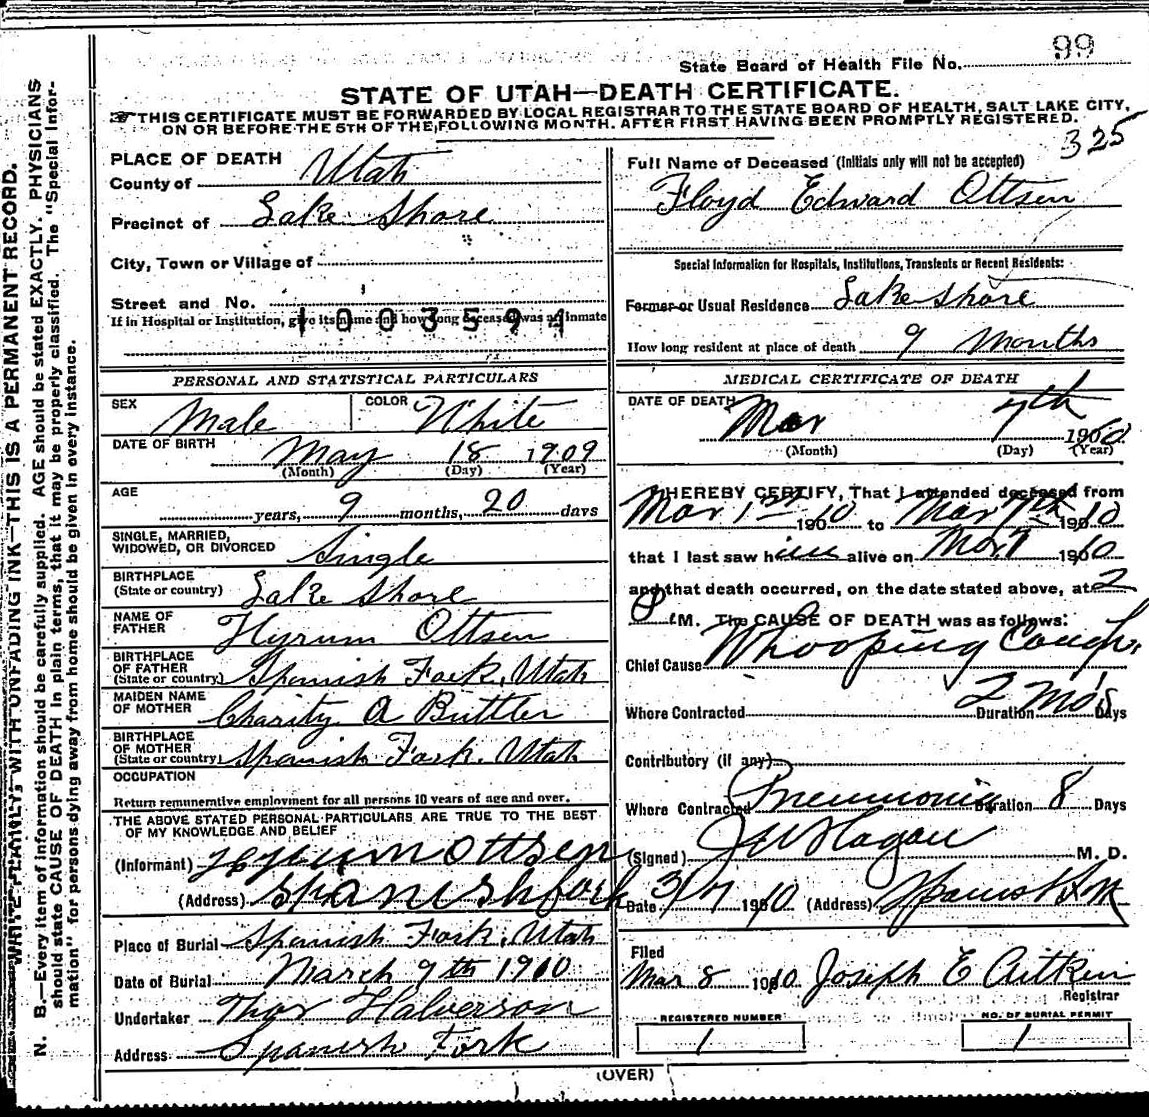 99
State Board of Health File No.
STATE OF UTAH—DEATH CERTIFICATE.
THIS CERTIFICATE MUST BE FORWARDED BY LOCAL REGISTRAR TO THE STATE BOARD OF HEALTH, SALT LAKE CITY,
ON OR BEFORE THE 5TH OF THE FOLLOWING MONTH. AFTER FIRST HAVING BEEN PROMPTLY REGISTERED.
325
WRITE PLAINLY, WITH UNFADING INK—THIS IS A PERMANENT RECORD.
N. B.—Every item of information should be carefully supplied. AGE should be stated EXACTLY. PHYSICIANS
should state CAUSE OF DEATH in plain terms, that it may be properly classified. The "Special Infor-
mation" for persons dying away from home should be given in every instance.
PLACE OF DEATH
County of Utah
Precinct of Lake Shore
City, Town or Village of
Street and No.
If in Hospital or Institution, give its name and how long deceased was an inmate
1003591
PERSONAL AND STATISTICAL PARTICULARS
SEX Male COLOR White
DATE OF BIRTH May 18 1909
(Month) (Day) (Year)
AGE
years, 9 months, 20 days
SINGLE, MARRIED,
WIDOWED, OR DIVORCED Single
BIRTHPLACE
(State or country) Lake Shore
NAME OF
FATHER Hyrum Ottsen
BIRTHPLACE
OF FATHER
(State or country) Spanish Fork, Utah
MAIDEN NAME
OF MOTHER Charity A Buttler
BIRTHPLACE
OF MOTHER
(State or country) Spanish Fork. Utah
OCCUPATION
Return remunerative employment for all persons 10 years of age and over.
THE ABOVE STATED PERSONAL PARTICULARS ARE TRUE TO THE BEST
OF MY KNOWLEDGE AND BELIEF
(Informant) Hyrum Ottsen
(Address) Spanishfork
Place of Burial Spanish Fork, Utah
Date of Burial March 9th 1910
Undertaker Thor Halverson
Address Spanish Fork
Full Name of Deceased (Initials only will not be accepted)
Floyd Edward Ottsen
Special Information for Hospitals, Institutions, Transients or Recent Residents:
Former or Usual Residence Lake Shore
How long resident at place of death 9 Months
MEDICAL CERTIFICATE OF DEATH
DATE OF DEATH Mar 7th 1910
(Month) (Day) (Year)
I HEREBY CERTIFY, That I attended deceased from
Mar 1st 1910 to Mar 7th 1910
that I last saw him alive on Mar 7 1910
and that death occurred, on the date stated above, at 2
P M. The CAUSE OF DEATH was as follows:
Chief Cause Whooping Cough
Where Contracted Duration 2 Mo's Days
Contributory (if any)
Where Contracted Pneumonia Duration 8 Days
(Signed) J W Hagan M. D.
Date 3/7 1910 (Address) Spanish Fk
Filed
Mar 8 1910 Joseph E Aitken
Registrar
REGISTERED NUMBER
1
NO. OF BURIAL PERMIT
1
(OVER)